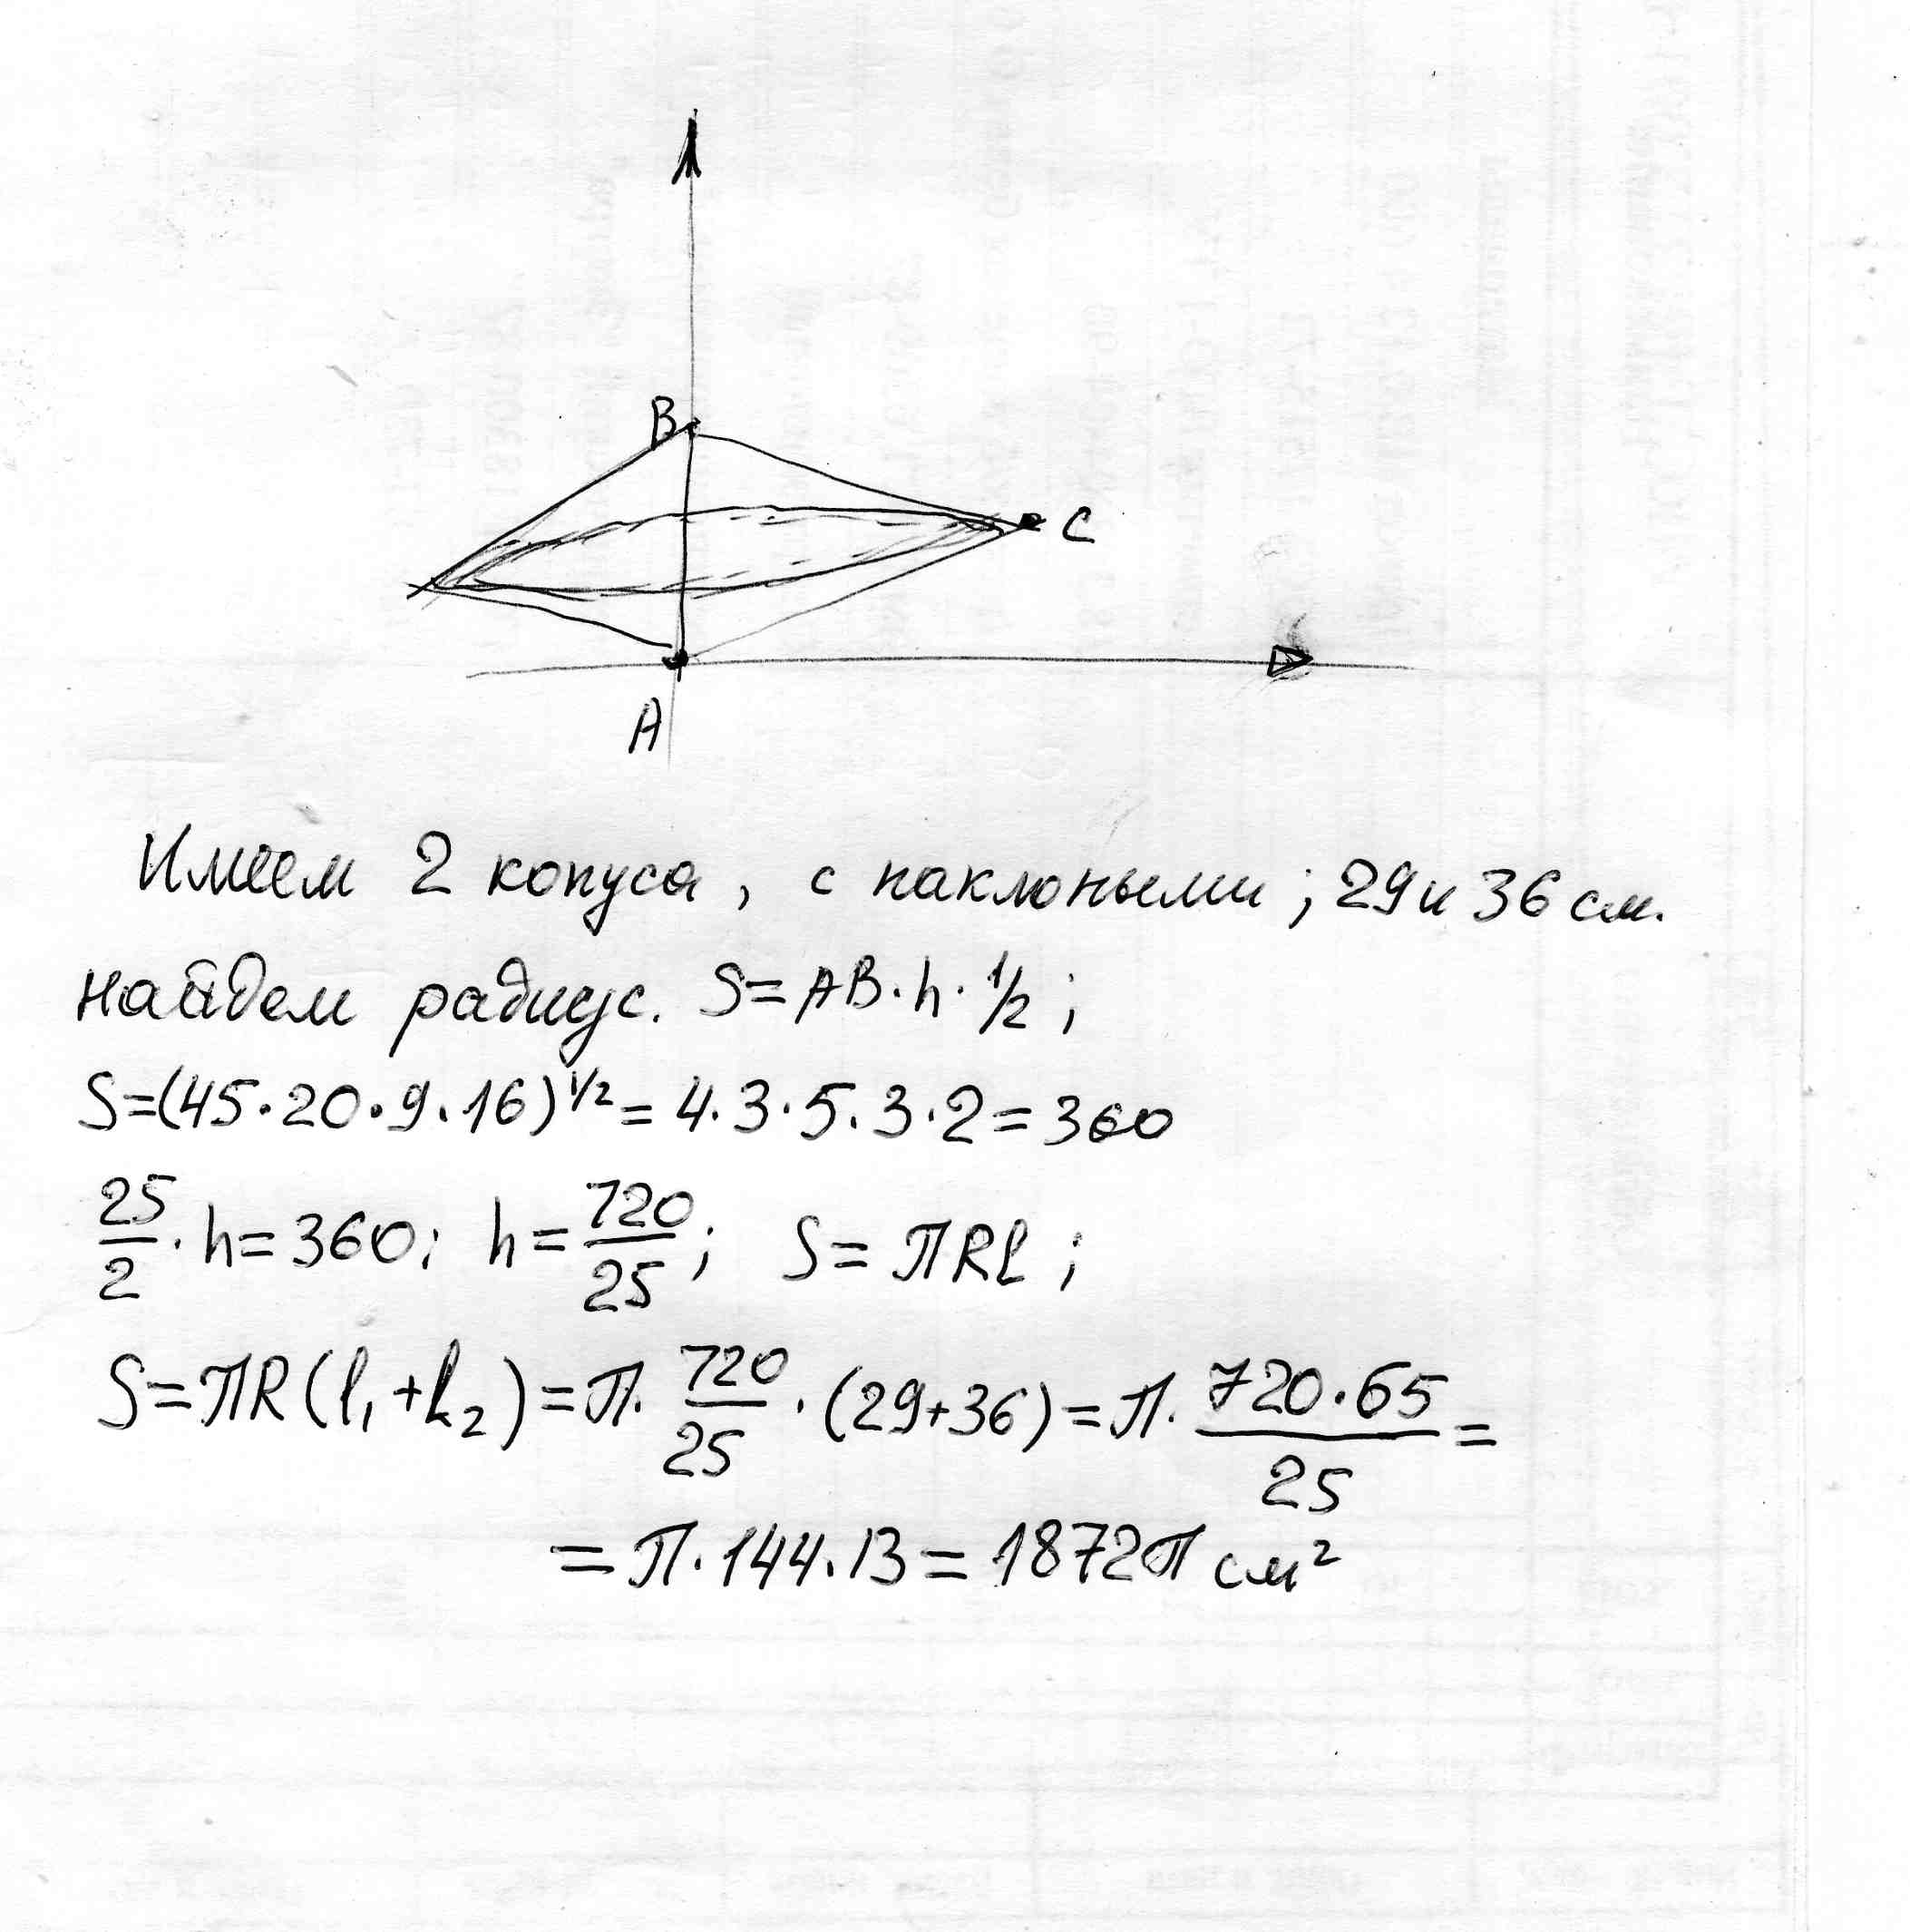 B
C
A
Имеем 2 конуса, с наклоными; 29 и 36 см.
найдем радиус. S=AB·h·1/2;
S=(45·20·9·16)^1/2=4·3·5·3·2=360
25/2·h=360; h=720/25; S=πRl;
S=πR(l₁+l₂)=π·720/25·(29+36)=π·720·65/25=
=π·144·13=1872π см²